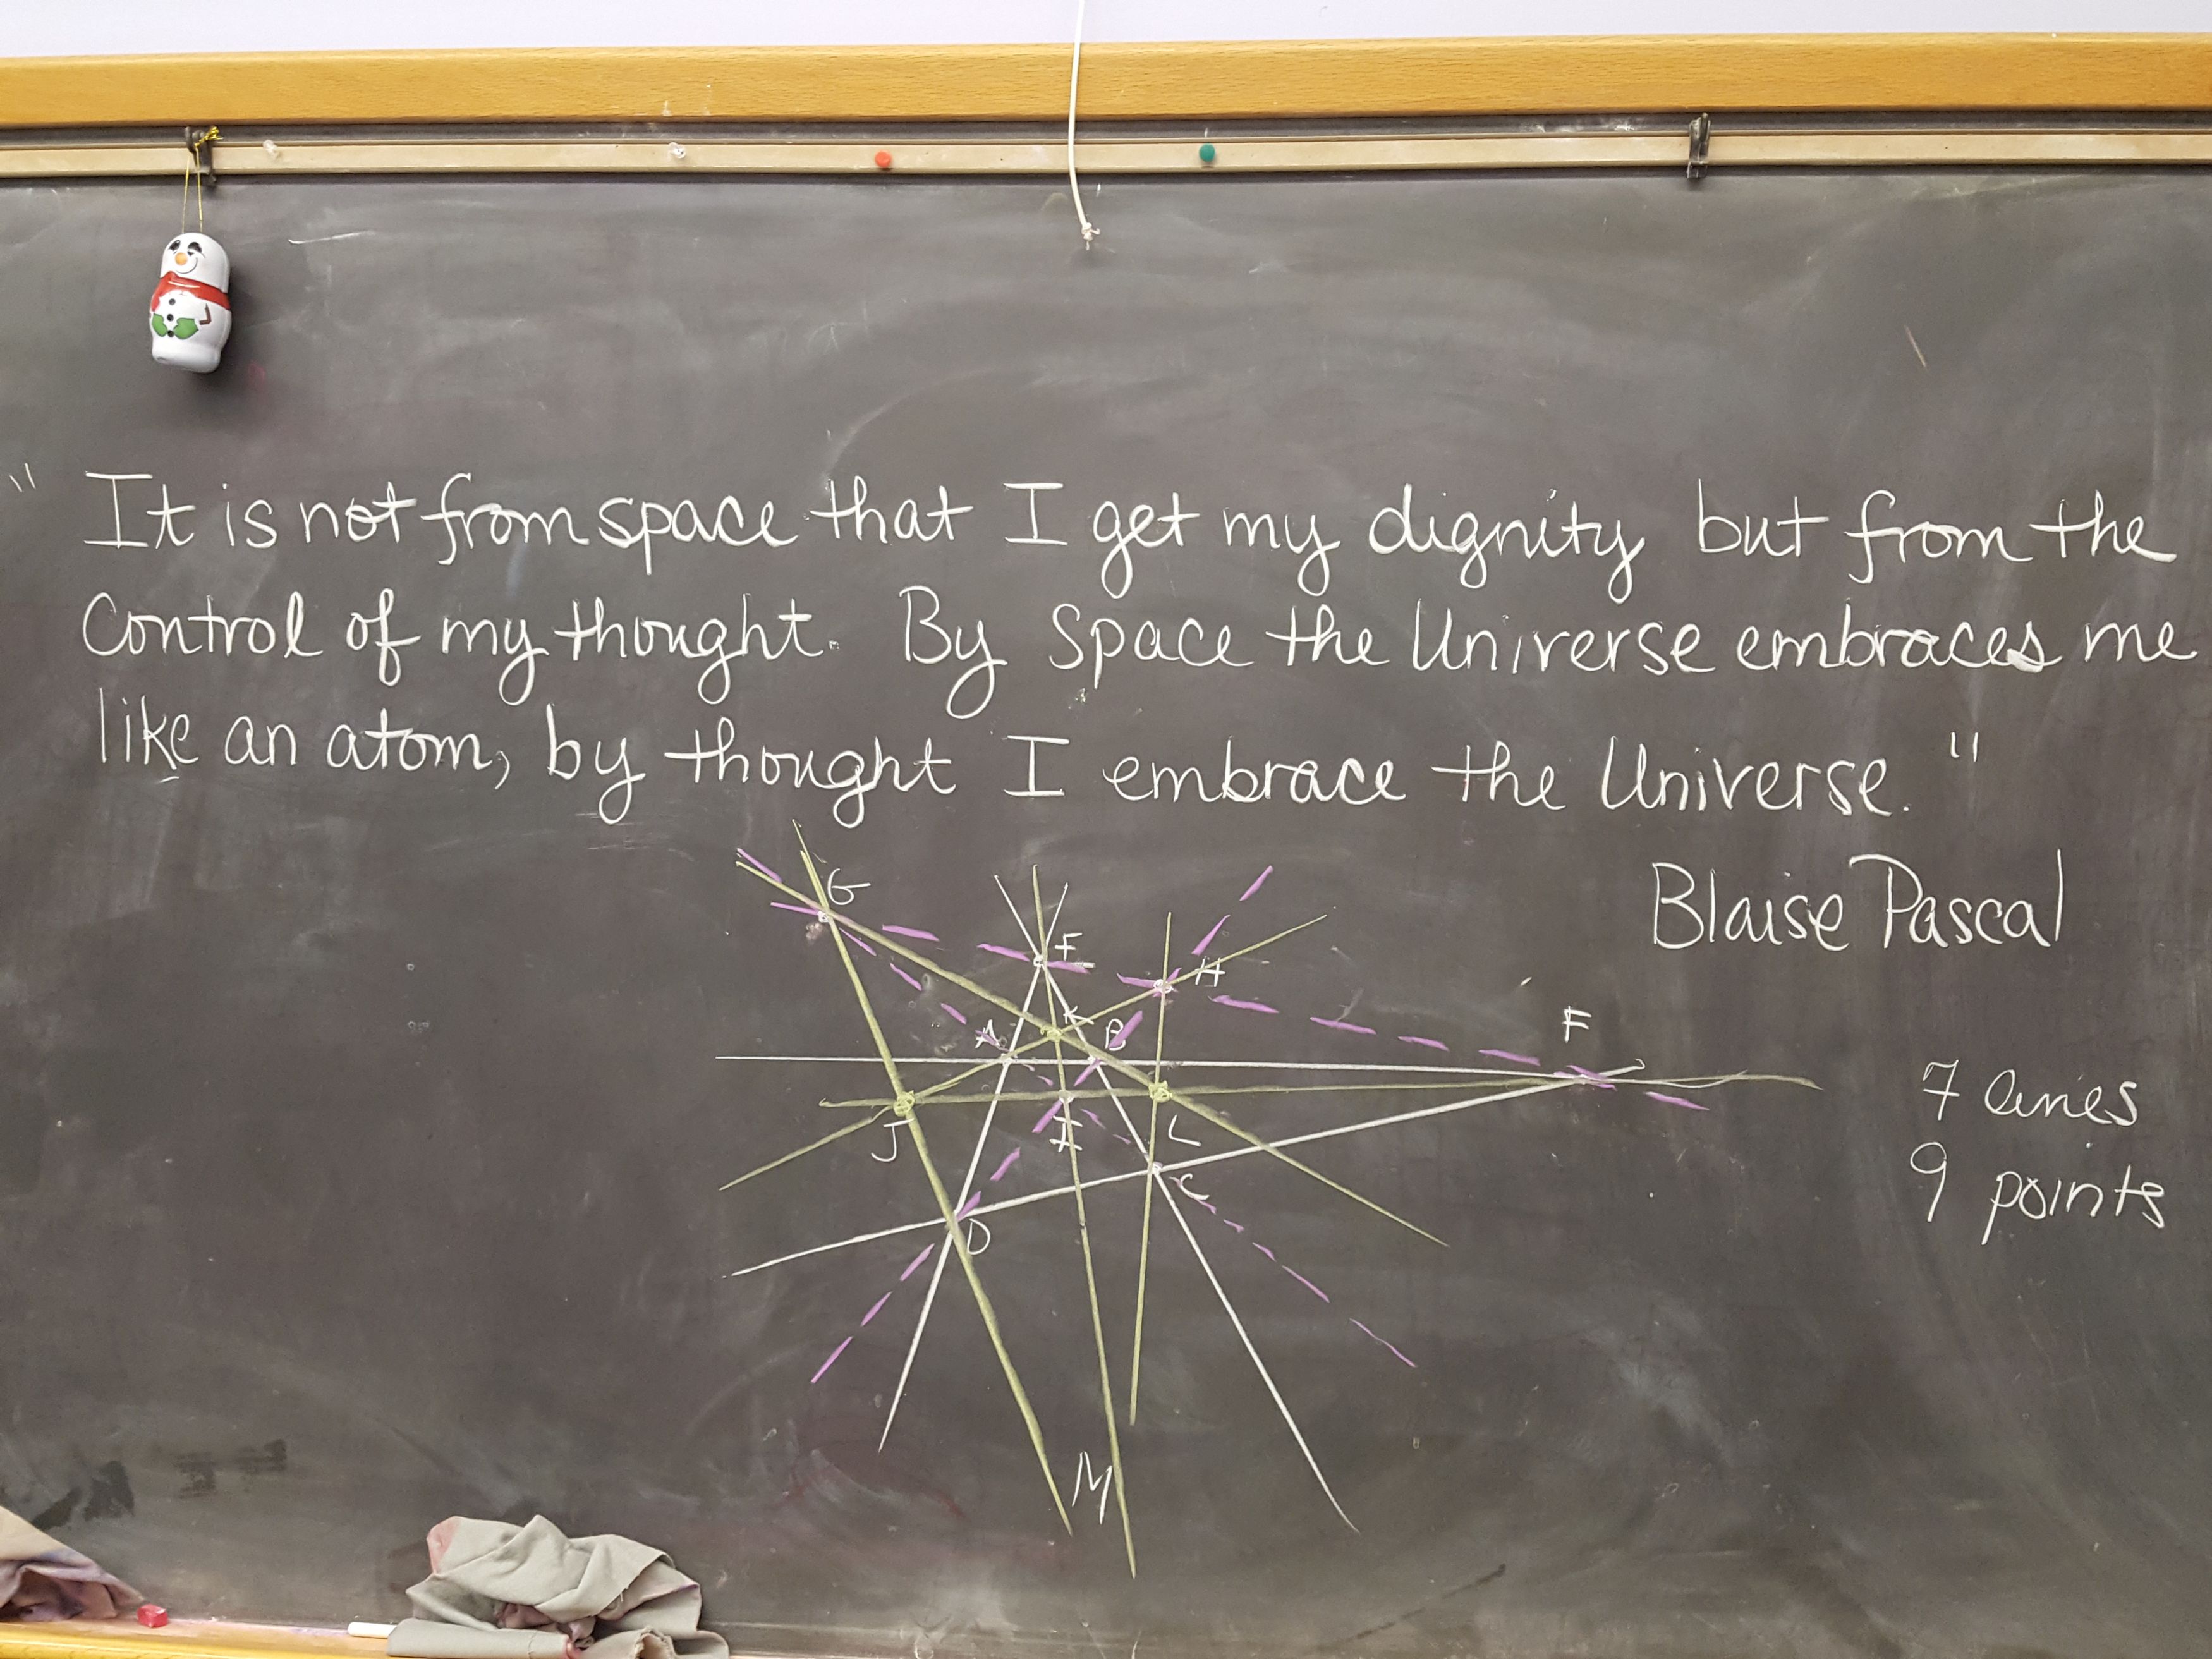 " It is not from space that I get my dignity but from the
Control of my thought. By Space the Universe embraces me
like an atom, by thought I embrace the Universe. "
Blaise Pascal
G
E
H
F
K
A
B
7 lines
J
I
L
9 points
C
D
M